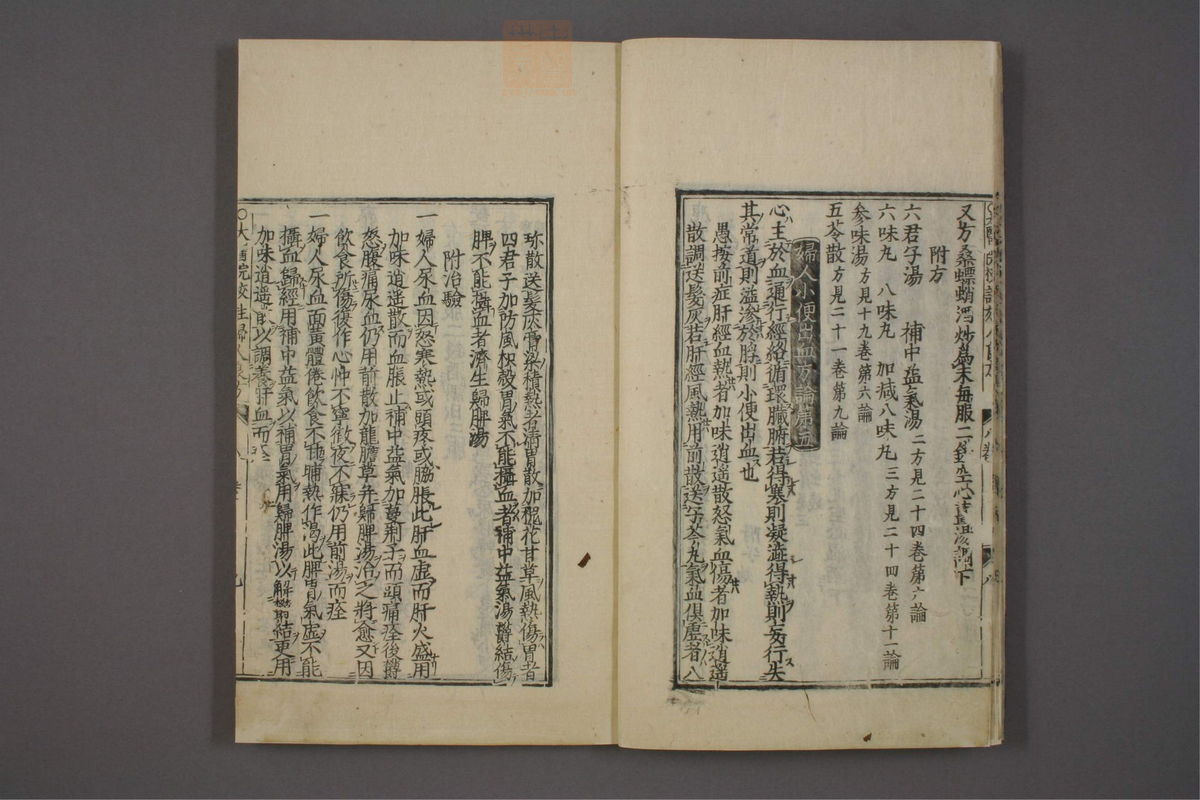 又方桑螵蛸酒炒爲末每服二錢空心姜湯調下
附方
六君子湯 補中益氣湯二方見二十四卷第六論
六味丸 八味丸 加减八味丸三方見二十四卷第十一論
參味湯方見十九卷第六論
五苓散方見二十一卷第九論
婦人小便出血方論第五
心主於血通行經絡循環臟腑若得寒則凝澁得熱則妄行失
其常道則溢滲於脬則小便出血也
愚按前症肝經血熱者加味逍遥散怒氣血傷者加味逍遥
散調送髮灰若肝經風熱用前散送子芩丸氣血俱虛者八
珎散送髮灰膏梁積熱者清胃散加槐花甘草風熱傷胃者
四君子加防風枳殼胃氣不能攝血者補中益氣湯欝結傷
脾不能攝血者濟生歸脾湯
附治驗
一婦人尿血因怒寒熱或頭疼或脇脹此肝血虛而肝火盛用
加味逍遥散而血脹止補中益氣加蔓荆子而頭痛痊後欝
怒腹痛尿血仍用前散加龍膽草并歸脾湯治之將愈又因
飲食所傷復作心忡不寧徹夜不寐仍用前湯而痊
一婦人尿血面黃體倦飲食不甘晡熱作渴此脾胃氣虛不能
攝血歸經用補中益氣以補胃氣用歸脾湯以解欝結更用
加味逍遥 以調養肝血而
大 院校 婦人良方